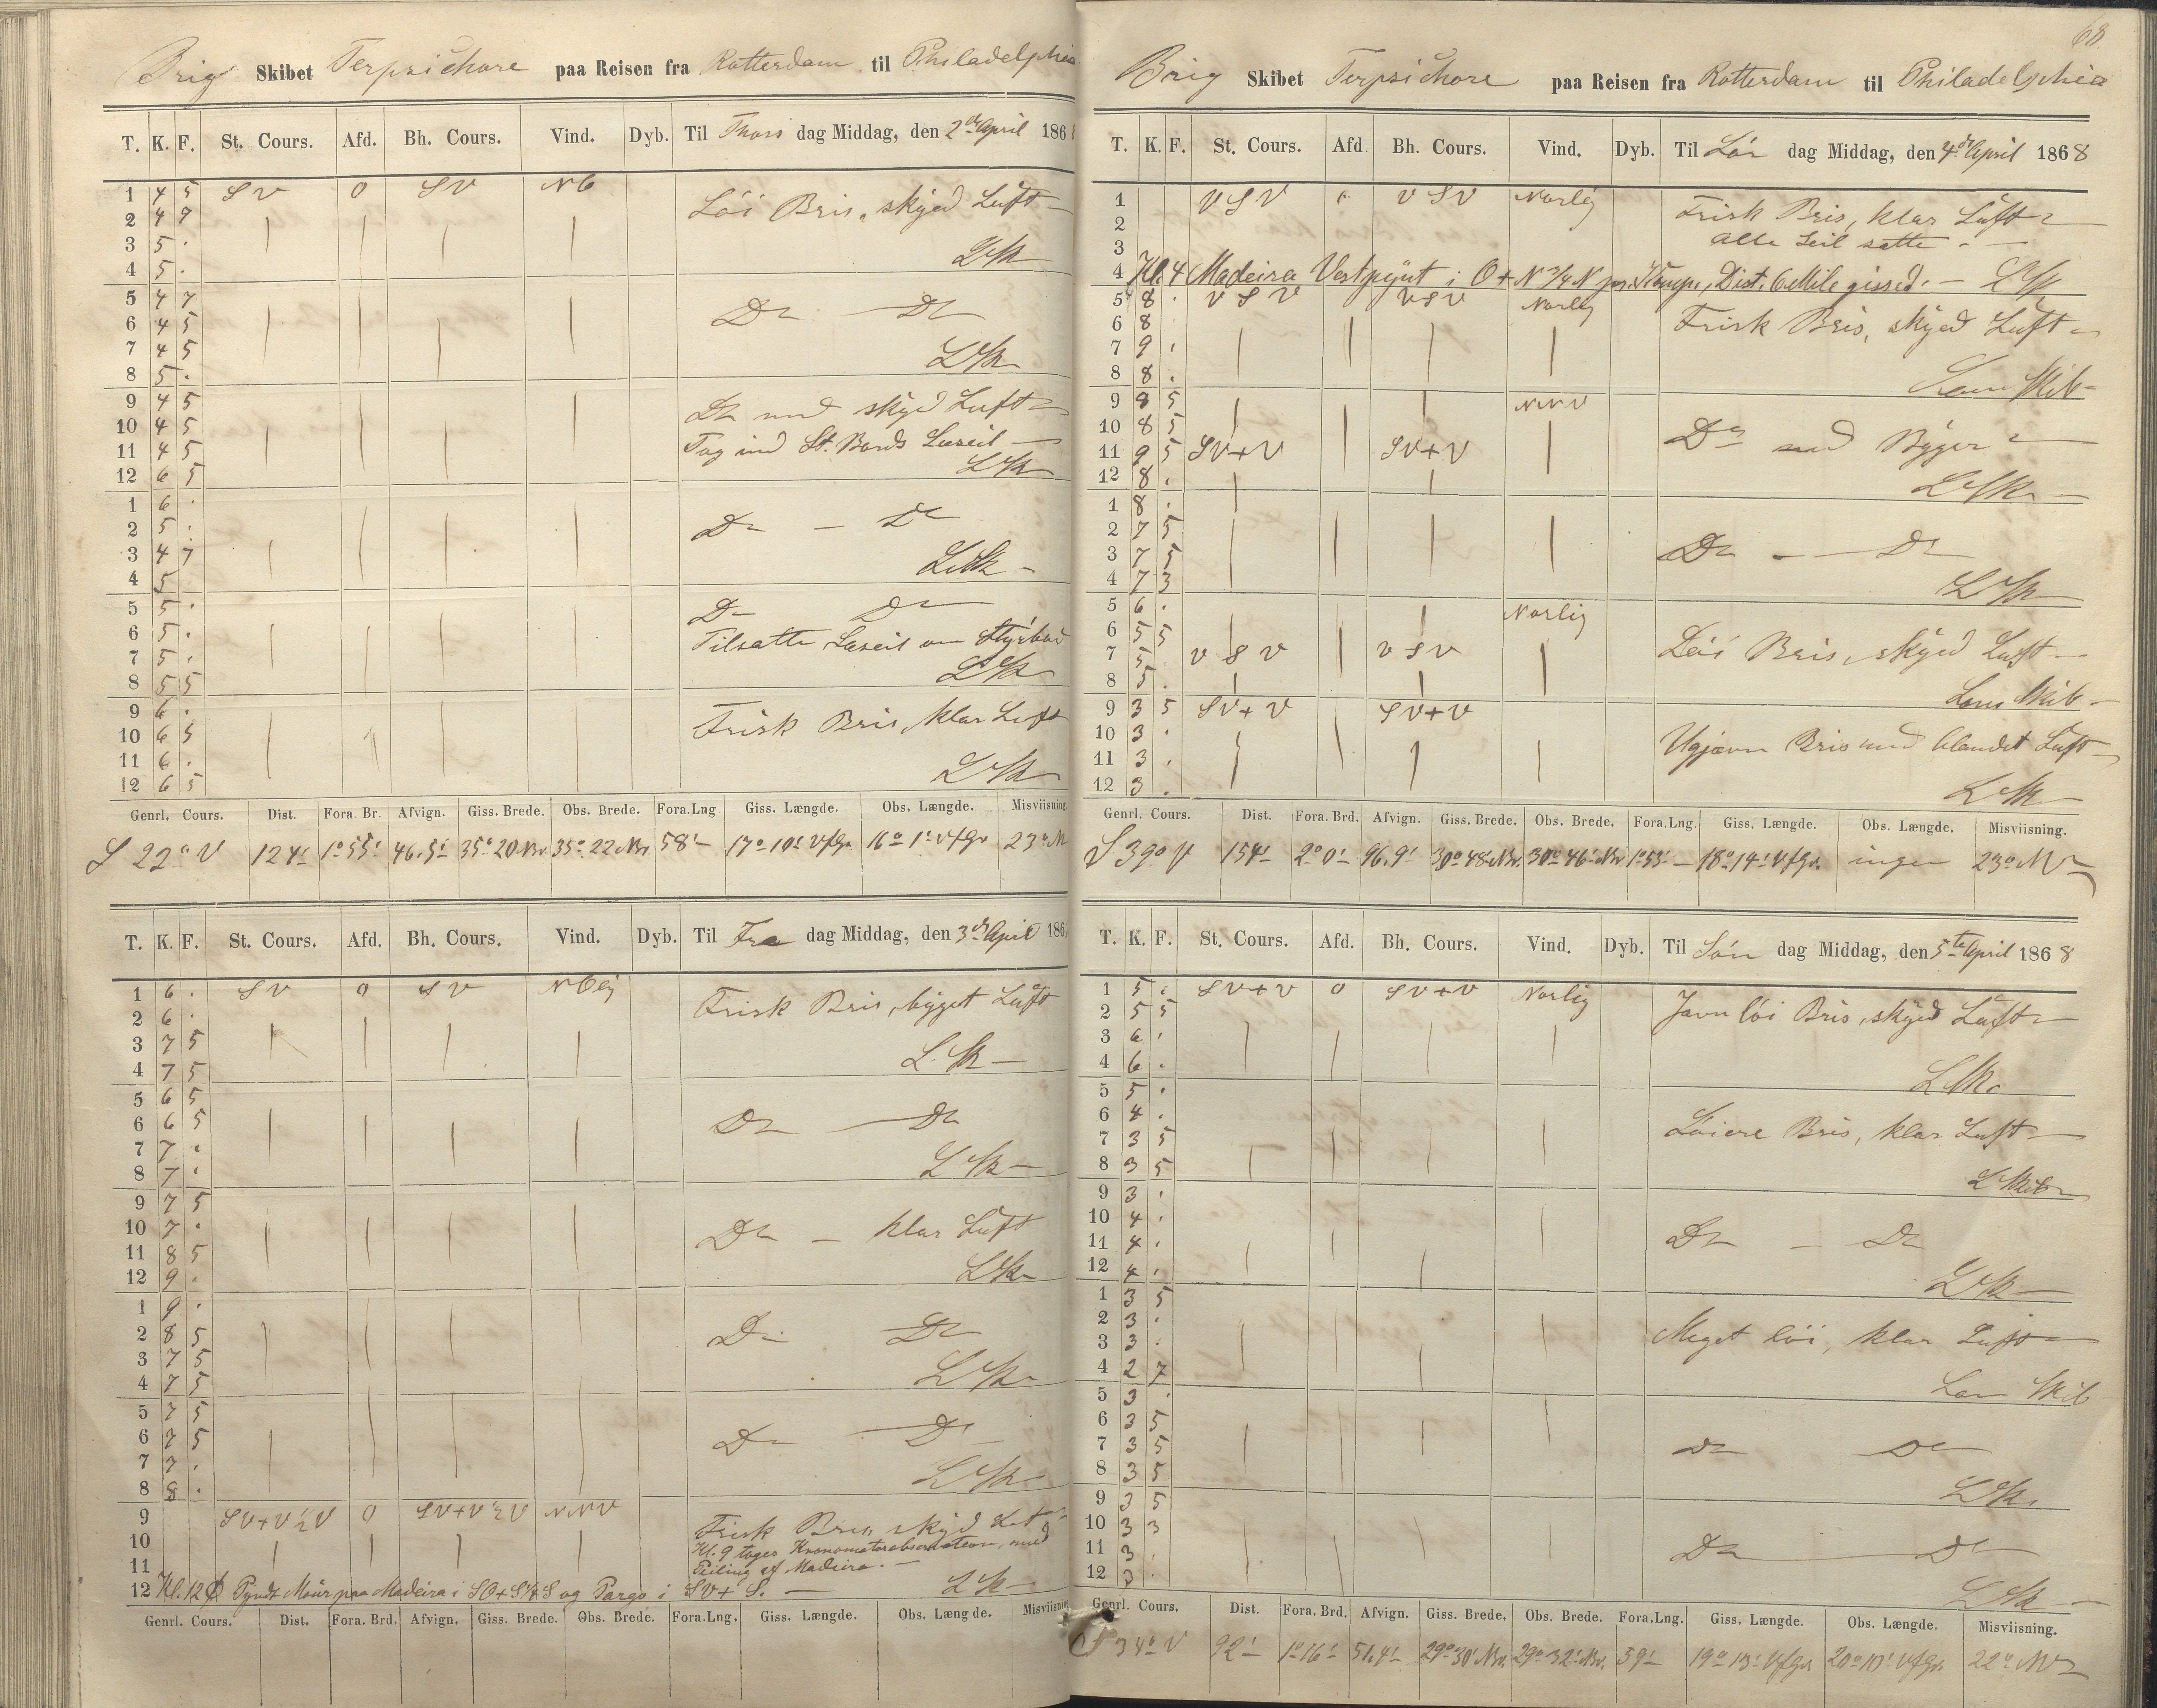 Brig Skibet Terpsichore paa Reisen fra Rotterdam til Philadelphia
T. K. F. St. Cours. Afd. Bh. Cours. Vind. Dyb. Til Thors dag Middag, den 2den April 186
1 4 5 SV 0 SV NO Löi Bris, skyed Luft
2 4 7
3 5 .
4 5 . L Sk
5 4 7 Do Do
6 4 5
7 4 5 L Sk
8 5 .
9 4 5 Do med skyed Luft
10 4 5
11 4 5 Tog ind St. Bords Læseil
12 6 5 L Sk
1 6 .
2 5 . Do - Do
3 4 7 L Sk
4 5
5 5 . Do Do
6 5 . Tilsatte Læseil om Styrbord
7 5 . L Sk
8 5 5
9 6 . Frisk Bris, klar Luft
10 6 5
11 6 .
12 6 5 L Sk
Genrl. Cours. Dist. Fora. Br. Afvign. Giss. Brede. Obs. Brede. Fora.Lng Giss. Længde. Obs. Længde. Misviisning
S 22° V 124' 1° 55' 46.5' 35° 20 Nr 35° 22 Nr 58' 17° 10' Vfgr 16° 1' Vfgr 23° NV
T. K. F. St. Cours. Afd. Bh. Cours. Vind. Dyb. Til Fre dag Middag, den 3de April 186
1 6 . SV 0 SV NOlig Frisk Bris, byget Luft
2 6 .
3 7 5
4 7 5 L. Sk
5 6 5
6 6 5 Do Do
7 7 .
8 7 . L Sk
9 7 5
10 7 . Do - klar Luft
11 8 5
12 9 . L Sk
1 9 .
2 8 5 Do Do
3 7 5
4 7 5 L Sk
5 7 5
6 7 5 Do Do
7 7 .
8 8 . L Sk
9 SV+V ½ V 0 SV+V ½ V NNV Frisk Bris, skyed Luft
10 Kl. 9 toges Kronometerobservation, med
11 Peiling af Madeira.
12 Kl. 12 Pynt Maur paa Madeira i SO+S ¼ S og Pargo i SV+S. L Sk
Genrl. Cours. Dist. Fora. Brd. Afvign. Giss. Brede. Obs. Brede. Fora.Lng. Giss. Længde. Obs. Længde. Misviisning
68.
Brig Skibet Terpsichore paa Reisen fra Rotterdam til Philadelphia
T. K. F. St. Cours. Afd. Bh. Cours. Vind. Dyb. Til Lör dag Middag, den 4de April 1868
1 VSV 0 VSV Norlig Frisk Bris, klar Luft
2 alle Seil satte
3
4 Kl. 4 Madeira Vestpynt i O+N ¾ N pr. Komp., Dist. 6 Mile gissed. L Sk
5 8 . VSV VSV Norlig Frisk Bris, skyed Luft
6 8
7 9 .
8 8 . Læns Skib
9 8 5 NNV
10 8 5 Do med Byger
11 9 5 SV+V SV+V
12 8 . L Sk
1 8 .
2 7 5
3 7 5 Do Do
4 7 3 L Sk
5 6 . Norlig
6 5 5
7 5 . VSV VSV Löi Bris, skyed Luft
8 5 . Læns Skib
9 3 5 SV+V SV+V
10 3 . Ujævn Bris med blandet Luft
11 3 .
12 3 . L Sk
Genrl. Cours. Dist. Fora. Brd. Afvign. Giss. Brede. Obs. Brede. Fora.Lng. Giss. Længde. Obs. Længde. Misviisning.
S 39° V 154' 2° 0' 96.9' 30° 48 Nr. 30° 46' Nr 1° 53' 18° 14' Vfgr. ingen 23° NV
T. K. F. St. Cours. Afd. Bh. Cours. Vind. Dyb. Til Sön dag Middag, den 5te April 1868
1 5 . SV+V 0 SV+V Norlig Jævn löi Bris, skyed Luft
2 5 5
3 6 .
4 6 . L Sk
5 5 .
6 4 . Löiere Bris, klar Luft
7 3 5
8 3 5 L Skib
9 3 .
10 4 .
11 4 . Do - Do
12 4 . L Sk
1 3 5
2 3 . Meget löi, klar Luft
3 3 .
4 2 7 Læns Skib
5 3 .
6 3 5
7 3 5 Do Do
8 3 5 L Sk
9 3 5
10 3 3
11 3 . Do Do
12 3 . L Sk
Genrl. Cours. Dist. Fora. Brd. Afvign. Giss. Brede. Obs. Brede. Fora.Lng. Giss. Længde. Obs. Længde. Misviisning.
S 34° V 92' 1° 16' 51.4' 29° 30' Nr. 29° 32' Nr. 59' 19° 13' Vfgr 20° 10' Vfgr 22° NV